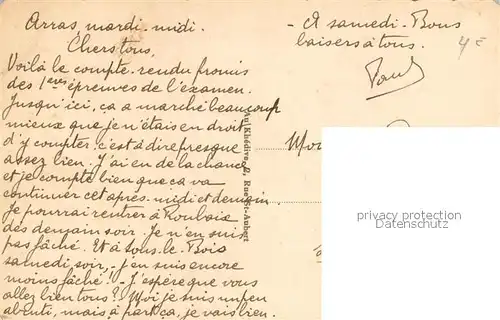 Arras, mardi-midi.
Chers tous,
Voilà le compte-rendu promis
des 1ères épreuves de l'examen.
Jusqu'ici, ça a marché beaucoup
mieux que je n'étais en droit
d'y compter. c'est à dire presque
assez bien. J'ai eu de la chance
et je compte bien que ça va
continuer cet après-midi et demain,
je pourrai rentrer à Roubaix
dès demain soir. Je n'en suis
pas fâché. Et à Sous-le-Bois
samedi soir, j'en suis encore
moins fâché! - J'espère que vous
allez bien tous? Moi je suis un peu
abruti, mais à part ça, je vais bien.
- A samedi. Bons
baisers à tous.
Paul
4€
Au Khédive, 2, Rue St-Aubert
privacy protection
Datenschutz